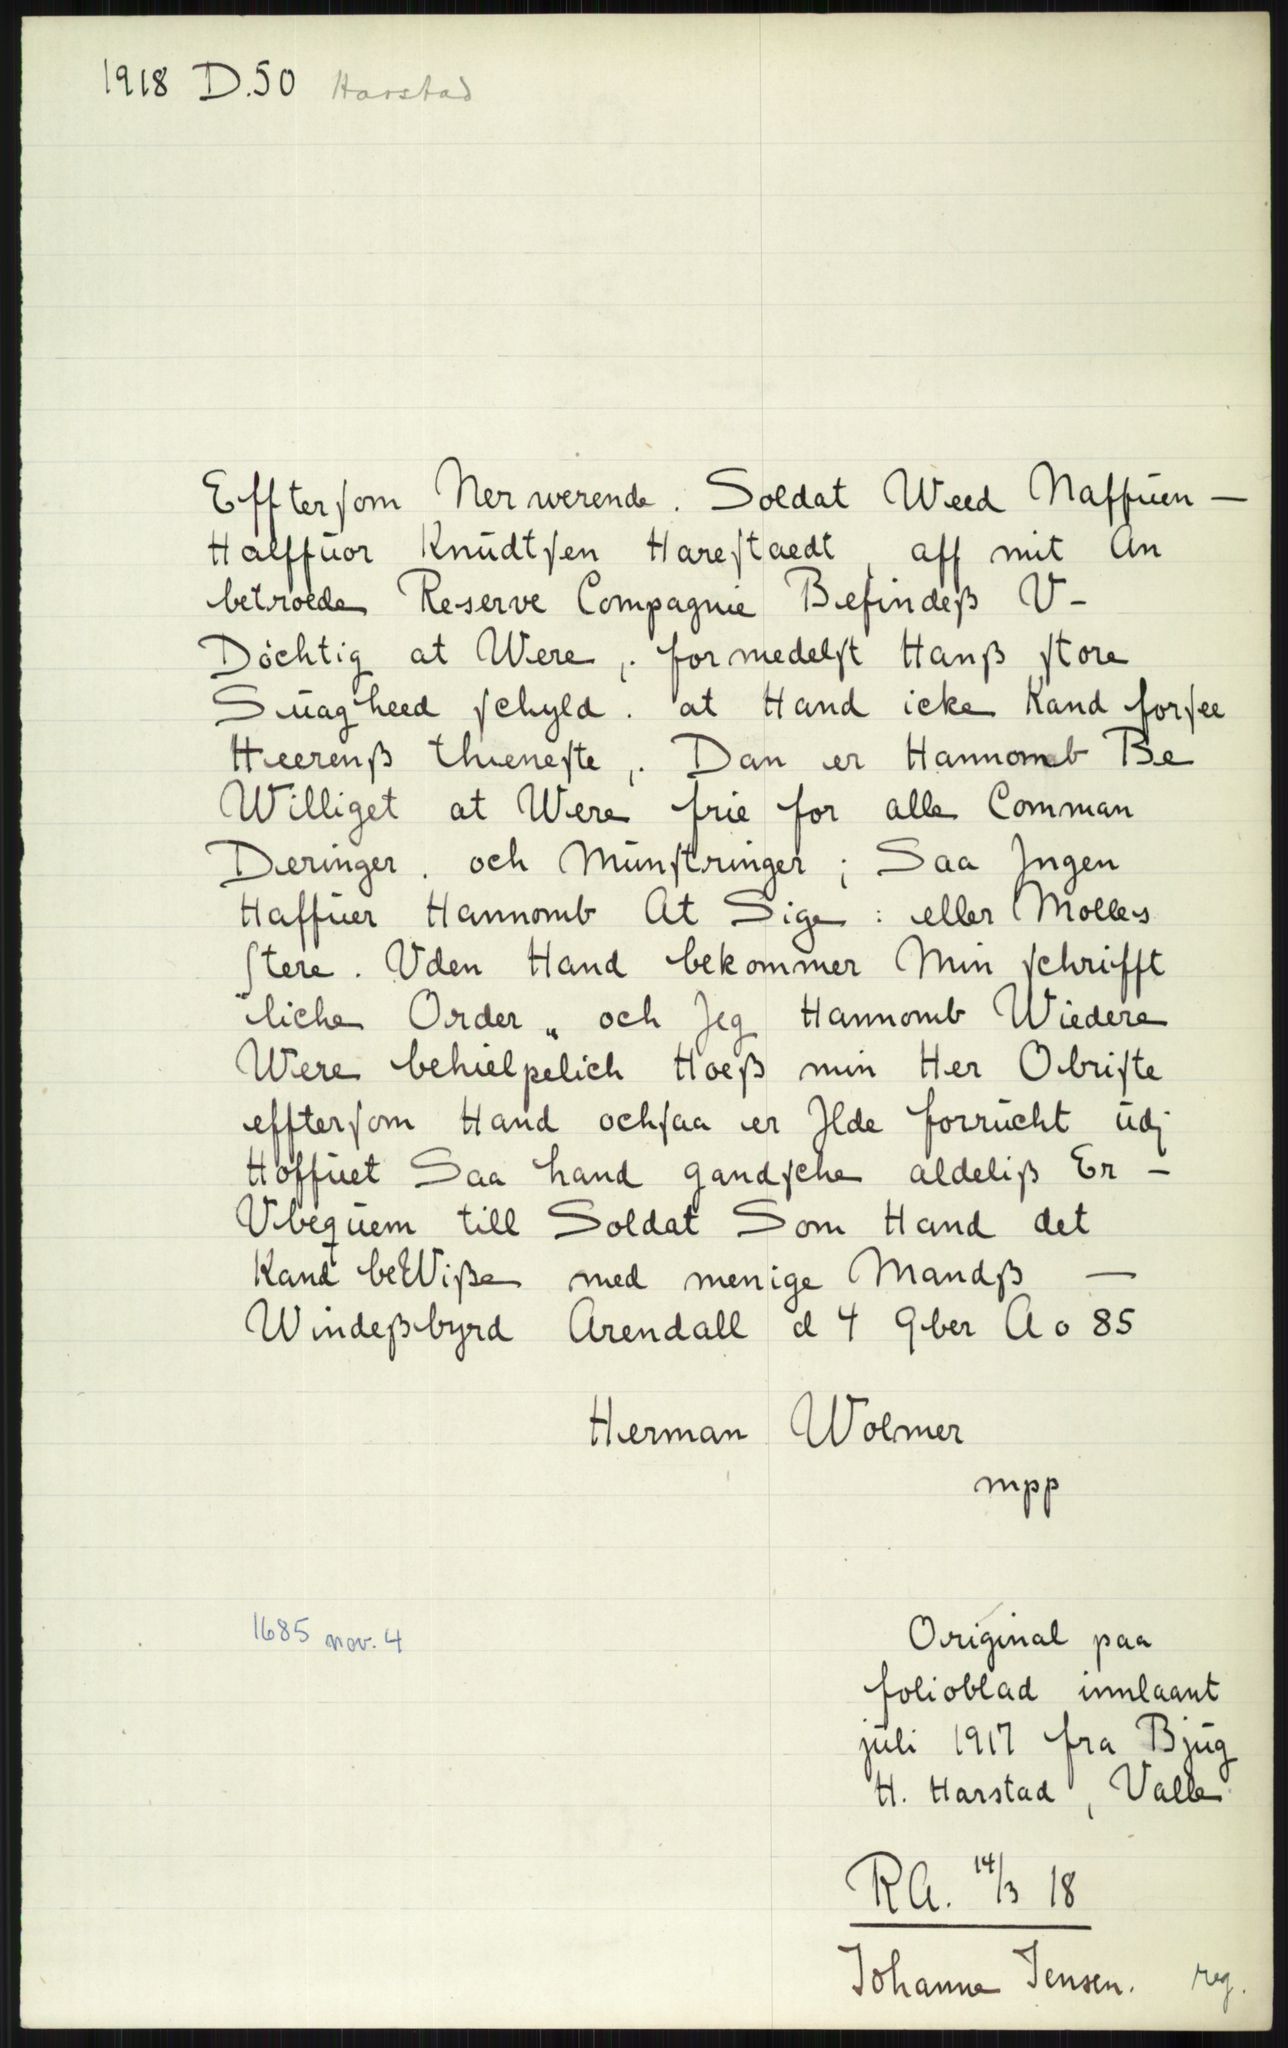 1918 D.50 Harstad
Effterſom Nerwerende. Soldat Weed Naffuen —
Halffuor Knudtſen Hareſtaedt, aff mit An
betroede Reserve Compagnie Befindeß V-
Döchtig at Were,. formedelſt Hanß ſtore
Suagheed ſchyld. at Hand icke Kand forſee
Heerenß thieneſte,. Dan er Hannomb Be
Williget at Were frie for alle Comman
Deringer. och Munſtringer; Saa Jngen
Haffuer Hannomb At Sige: eller Molles
ſtere. Vden Hand bekommer Min ſchrifft
liche Order „ och Jeg Hannomb Wiedere
Were behielpelich Hoeß min Her Obriſte
effterſom Hand ochſaa er Jlde forrucht udj
Hoffuet Saa hand gandſche aldeliß Er —
Vbequem till Soldat Som Hand det
Kand beWiße med menige Mandß —
Windeßbyrd Arendall d 4 9ber Ao 85
Herman Wolmer
mpp
1685 nov. 4
Original paa
folioblad innlaant
juli 1917 fra Bjug
H. Harstad, Valle
RA. 14/3 18
Johanne Jensen. reg.